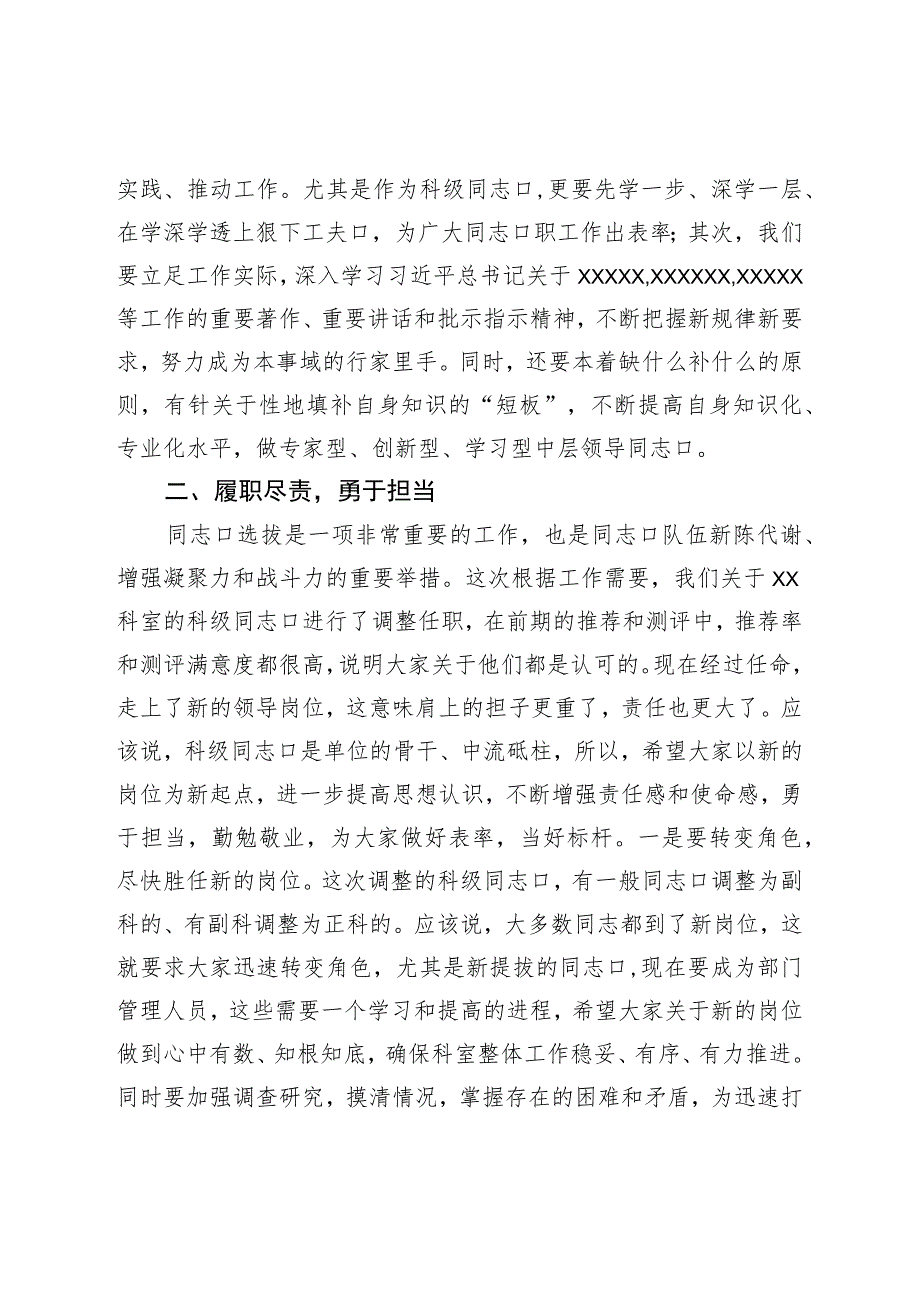 实践、推动工作。尤其是作为科级同志口,更要先学一步、深学一层、
在学深学透上狠下工夫口，为广大同志口职工作出表率；其次，我们
要立足工作实际，深入学习习近平总书记关于 XXXXX,XXXXXX,XXXXX
等工作的重要著作、重要讲话和批示指示精神，不断把握新规律新要
求，努力成为本事域的行家里手。同时，还要本着缺什么补什么的原
则，有针关于性地填补自身知识的“短板”，不断提高自身知识化、
专业化水平，做专家型、创新型、学习型中层领导同志口。
二、履职尽责，勇于担当
同志口选拔是一项非常重要的工作，也是同志口队伍新陈代谢、
增强凝聚力和战斗力的重要举措。这次根据工作需要，我们关于 XX
科室的科级同志口进行了调整任职，在前期的推荐和测评中，推荐率
和测评满意度都很高，说明大家关于他们都是认可的。现在经过任命，
走上了新的领导岗位，这意味肩上的担子更重了，责任也更大了。应
该说，科级同志口是单位的骨干、中流砥柱，所以，希望大家以新的
岗位为新起点，进一步提高思想认识，不断增强责任感和使命感，勇
于担当，勤勉敬业，为大家做好表率，当好标杆。一是要转变角色，
尽快胜任新的岗位。这次调整的科级同志口，有一般同志口调整为副
科的、有副科调整为正科的。应该说，大多数同志都到了新岗位，这
就要求大家迅速转变角色，尤其是新提拔的同志口,现在要成为部门
管理人员，这些需要一个学习和提高的进程，希望大家关于新的岗位
做到心中有数、知根知底，确保科室整体工作稳妥、有序、有力推进。
同时要加强调查研究，摸清情况，掌握存在的困难和矛盾，为迅速打